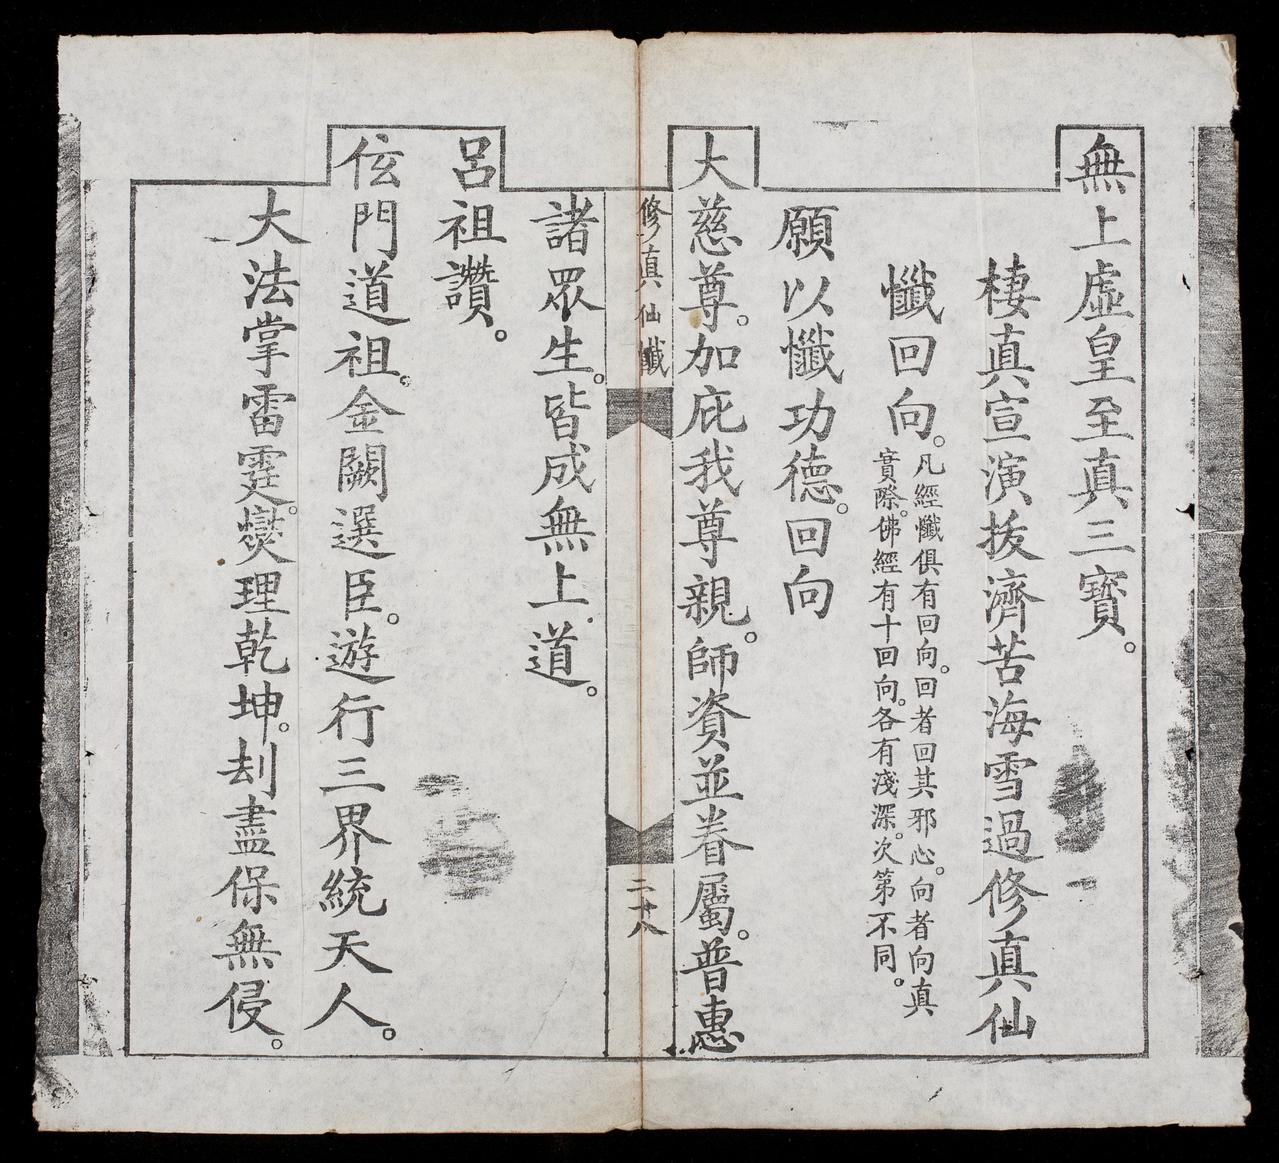 無上虛皇至真三寳。
棲真宣演拔濟苦海雪過修真仙
懺回向。
凡經懺俱有回向。回者回其邪心。向者向真
實際。佛經有十回向。各有淺深。次第不同。
願以懺功德。回向
大慈尊。加庇我尊親。師資並眷屬。普惠
修真仙懺
二十八
諸眾生。皆成無上道。
呂祖讚。
伭門道祖。金闕選臣。遊行三界統天人。
大法掌雷霆。爕理乾坤。刦盡保無侵。